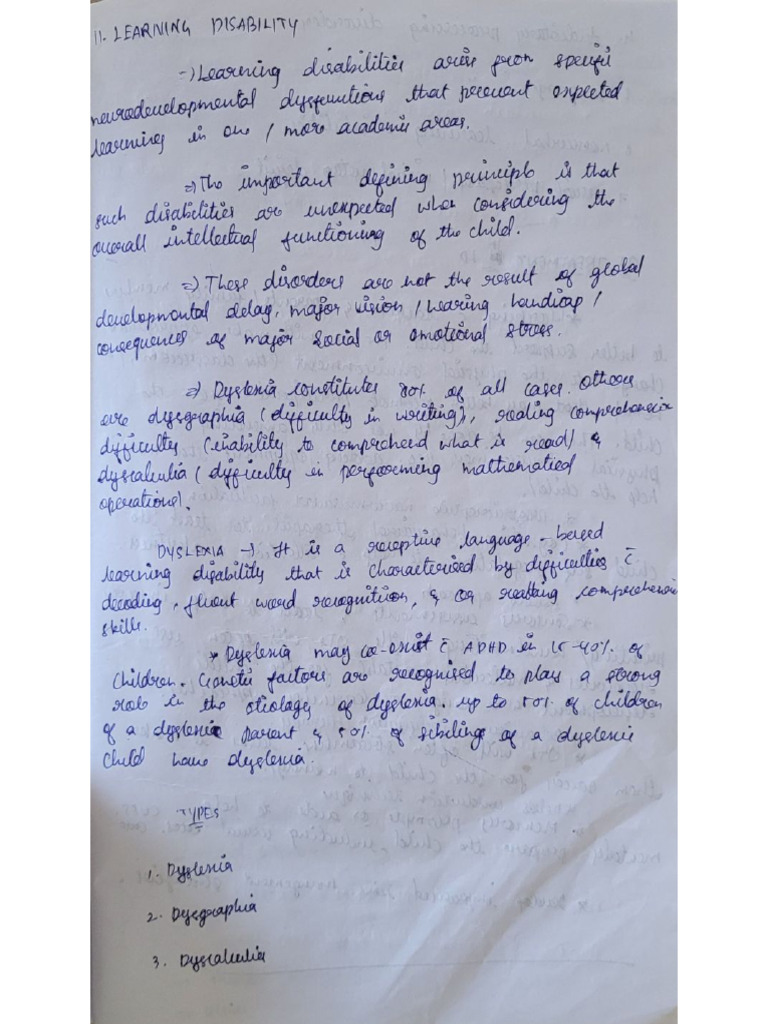 11. LEARNING DISABILITY
=> Learning disabilities arise from specific
neurodevelopmental dysfunctions that prevent expected
learning in one / more academic areas.
=> The important defining principle is that
such disabilities are unexpected when considering the
overall intellectual functioning of the child.
=> These disorders are not the result of global
developmental delay, major vision / hearing handicap /
consequences of major social or emotional stress.
=> Dyslexia constitutes 80% of all cases others
are dysgraphia (difficulty in writing), reading comprehension
difficulty (inability to comprehend what is read) &
dyscalculia (difficulty in performing mathematical
operations).
DYSLEXIA → It is a receptive language-based
learning disability that is characterised by difficulties c̄
decoding, fluent word recognition, & or reading comprehension
skills.
* Dyslexia may co-exist c̄ ADHD in 15-40% of
children. Genetic factors are recognised to play a strong
role in the etiology of dyslexia. up to 50% of children
of a dyslexic parent & 50% of sibiling of a dyslexic
child have dyslexia.
TYPES
1. Dyslexia
2. Dysgraphia
3. Dyscalculia